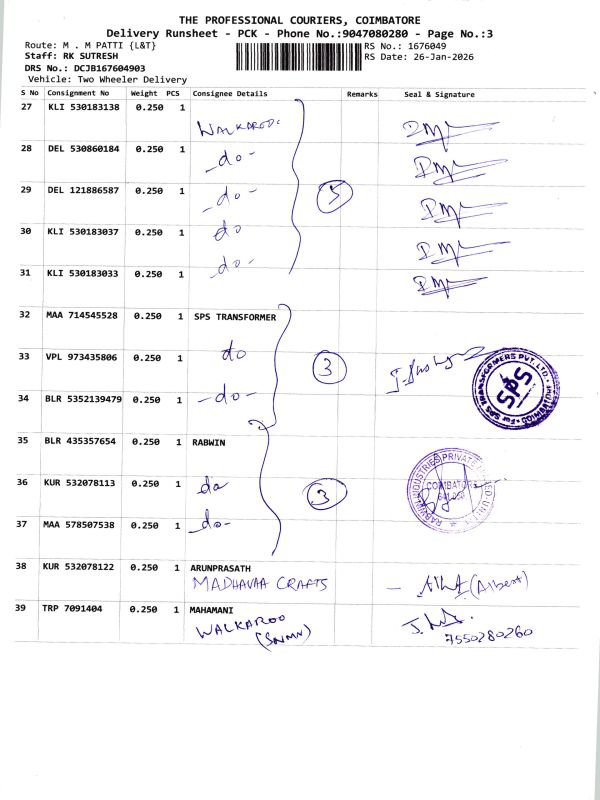 THE PROFESSIONAL COURIERS, COIMBATORE
Delivery Runsheet - PCK - Phone No.:9047080280 - Page No.:3
Route: M . M PATTI {L&T} RS No.: 1676049
Staff: RK SUTRESH RS Date: 26-Jan-2026
DRS No.: DCJB167604903
Vehicle: Two Wheeler Delivery
S No Consignment No Weight PCS Consignee Details Remarks Seal & Signature
27 KLI 530183138 0.250 1
WALKAROO
28 DEL 530860184 0.250 1
-do-
29 DEL 121886587 0.250 1
-do- 5
30 KLI 530183037 0.250 1 do
31 KLI 530183033 0.250 1 -do-
32 MAA 714545528 0.250 1 SPS TRANSFORMER
33 VPL 973435806 0.250 1 do 3
34 BLR 5352139479 0.250 1 -do-
SPS TRANSFORMERS PVT. LTD.
For
SPS
35 BLR 435357654 0.250 1 RABWIN
INDUSTRIES PRIVATE
COIMBATORE
36 KUR 532078113 0.250 1 do 3
37 MAA 578507538 0.250 1 -do-
38 KUR 532078122 0.250 1 ARUNPRASATH
MADHAVAA CRAFTS - (Albert)
39 TRP 7091404 0.250 1 MAHAMANI
WALKAROO
7550280260